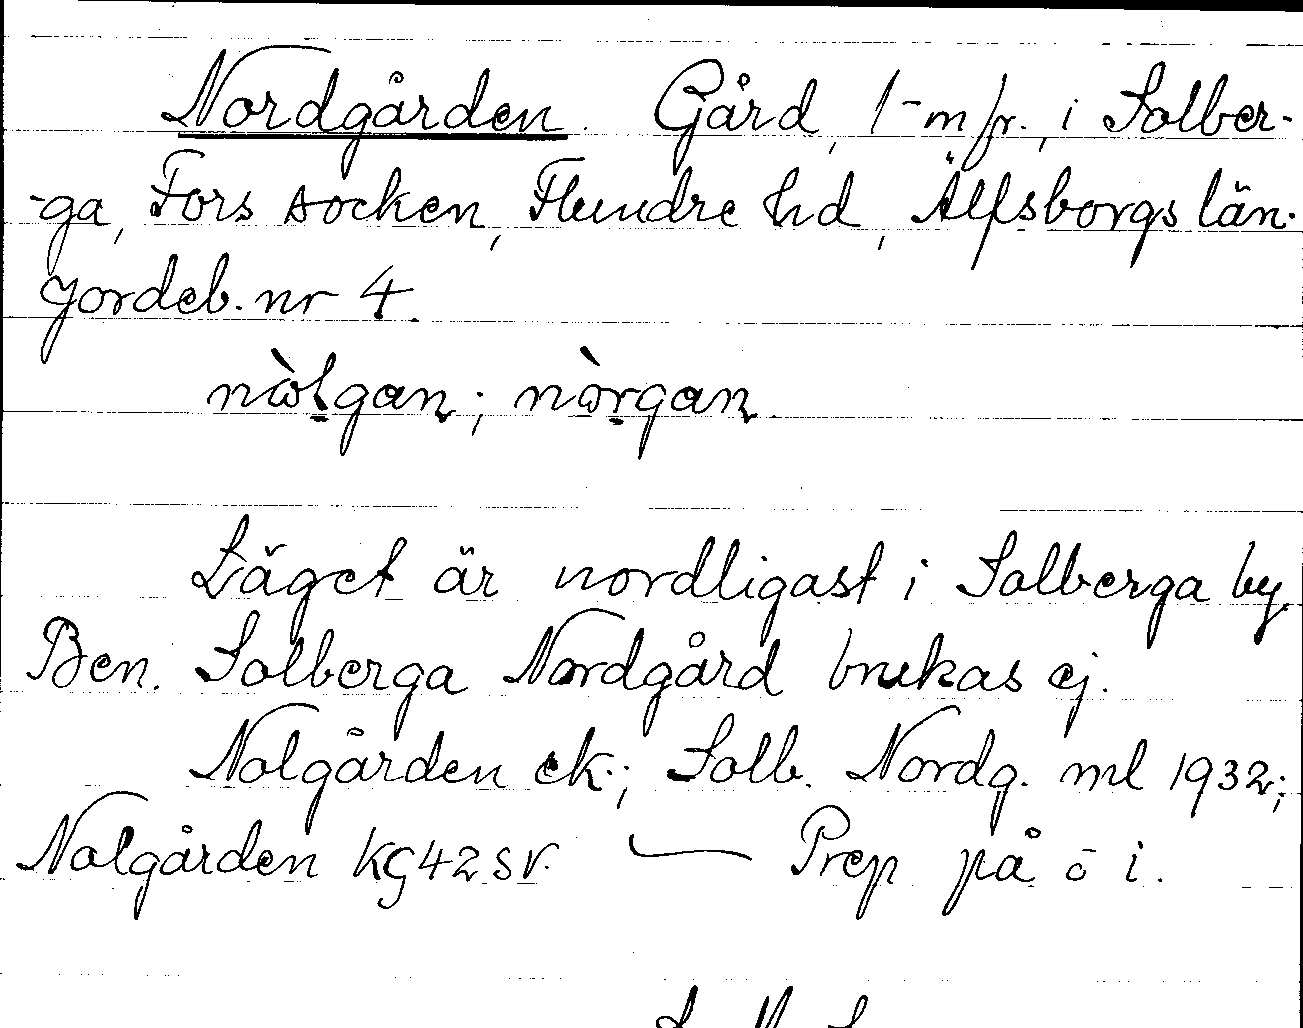 Nordgården. Gård, 1-m/fr., i Solber-
-ga, Fors socken, Flundre hd, Älfsborgs län.
Jordeb. nr 4.
nòlgan; nòrgan.
Läget är nordligast i Solberga by.
Ben. Solberga Nordgård brukas ej.
Nolgården ek.; Solb. Nordg. ml 1932;
Nolgården KG42SV. — Prep på o i.